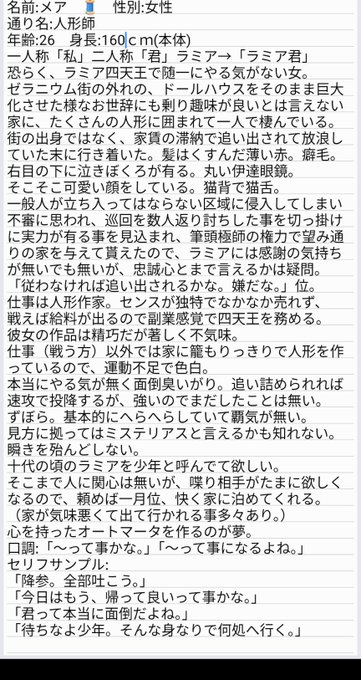 名前:メア 🧵 性別:女性
通り名:人形師
年齢:26 身長:160ｃｍ(本体)
一人称「私」二人称「君」ラミア→「ラミア君」
恐らく、ラミア四天王で随一にやる気がない女。
ゼラニウム街の外れの、ドールハウスをそのまま巨大
化させた様なお世辞にも剰り趣味が良いとは言えない
家に、たくさんの人形に囲まれて一人で棲んでいる。
街の出身ではなく、家賃の滞納で追い出されて放浪し
ていた末に行き着いた。髪はくすんだ薄い赤。癖毛。
右目の下に泣きぼくろが有る。丸い伊達眼鏡。
そこそこ可愛い顔をしている。猫背で猫舌。
一般人が立ち入ってはならない区域に侵入してしまい
不審に思われ、巡回を数人返り討ちした事を切っ掛け
に実力が有る事を見込まれ、筆頭極師の権力で望み通
りの家を与えて貰えたので、ラミアには感謝の気持ち
が無いでも無いが、忠誠心とまで言えるかは疑問。
「従わなければ追い出されるかな。嫌だな。」位。
仕事は人形作家。センスが独特でなかなか売れず、
戦えば給料が出るので副業感覚で四天王を務める。
彼女の作品は精巧だが著しく不気味。
仕事（戦う方）以外では家に籠もりっきりで人形を作
っているので、運動不足で色白。
本当にやる気が無く面倒臭いがり。追い詰められれば
速攻で投降するが、強いのでまだしたことは無い。
ずぼら。基本的にへらへらしていて覇気が無い。
見方に拠ってはミステリアスと言えるかも知れない。
瞬きを殆んどしない。
十代の頃のラミアを少年と呼んでて欲しい。
そこまで人に関心は無いが、喋り相手がたまに欲しく
なるので、頼めば一月位、快く家に泊めてくれる。
（家が気味悪くて出て行かれる事多々あり。）
心を持ったオートマータを作るのが夢。
口調:「～って事かな。」「～って事になるよね。」
セリフサンプル:
「降参。全部吐こう。」
「今日はもう、帰って良いって事かな。」
「君って本当に面倒だよね。」
「待ちなよ少年。そんな身なりで何処へ行く。」